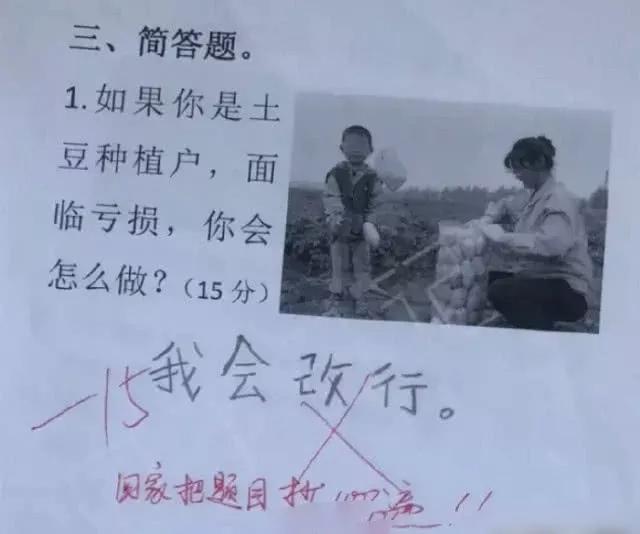 三、简答题。
1.如果你是土
豆种植户，面
临亏损，你会
怎么做？（15分）
我会改行。
-15
回家把题目抄100遍!!